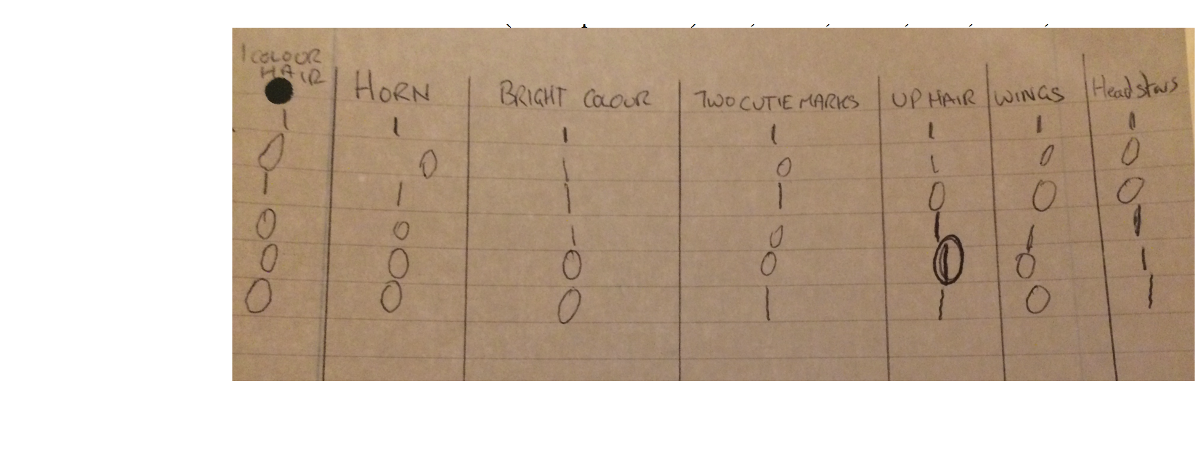 1 COLOUR HAIR HORN BRIGHT COLOUR TWO CUTIE MARKS UP HAIR WINGS Head stars
1 1 1 1 1 1 1
0 0 1 0 1 0 0
1 1 1 1 0 0 0
0 0 1 0 1 1 1
0 0 0 0 0 1
0 0 0 1 1 0 1